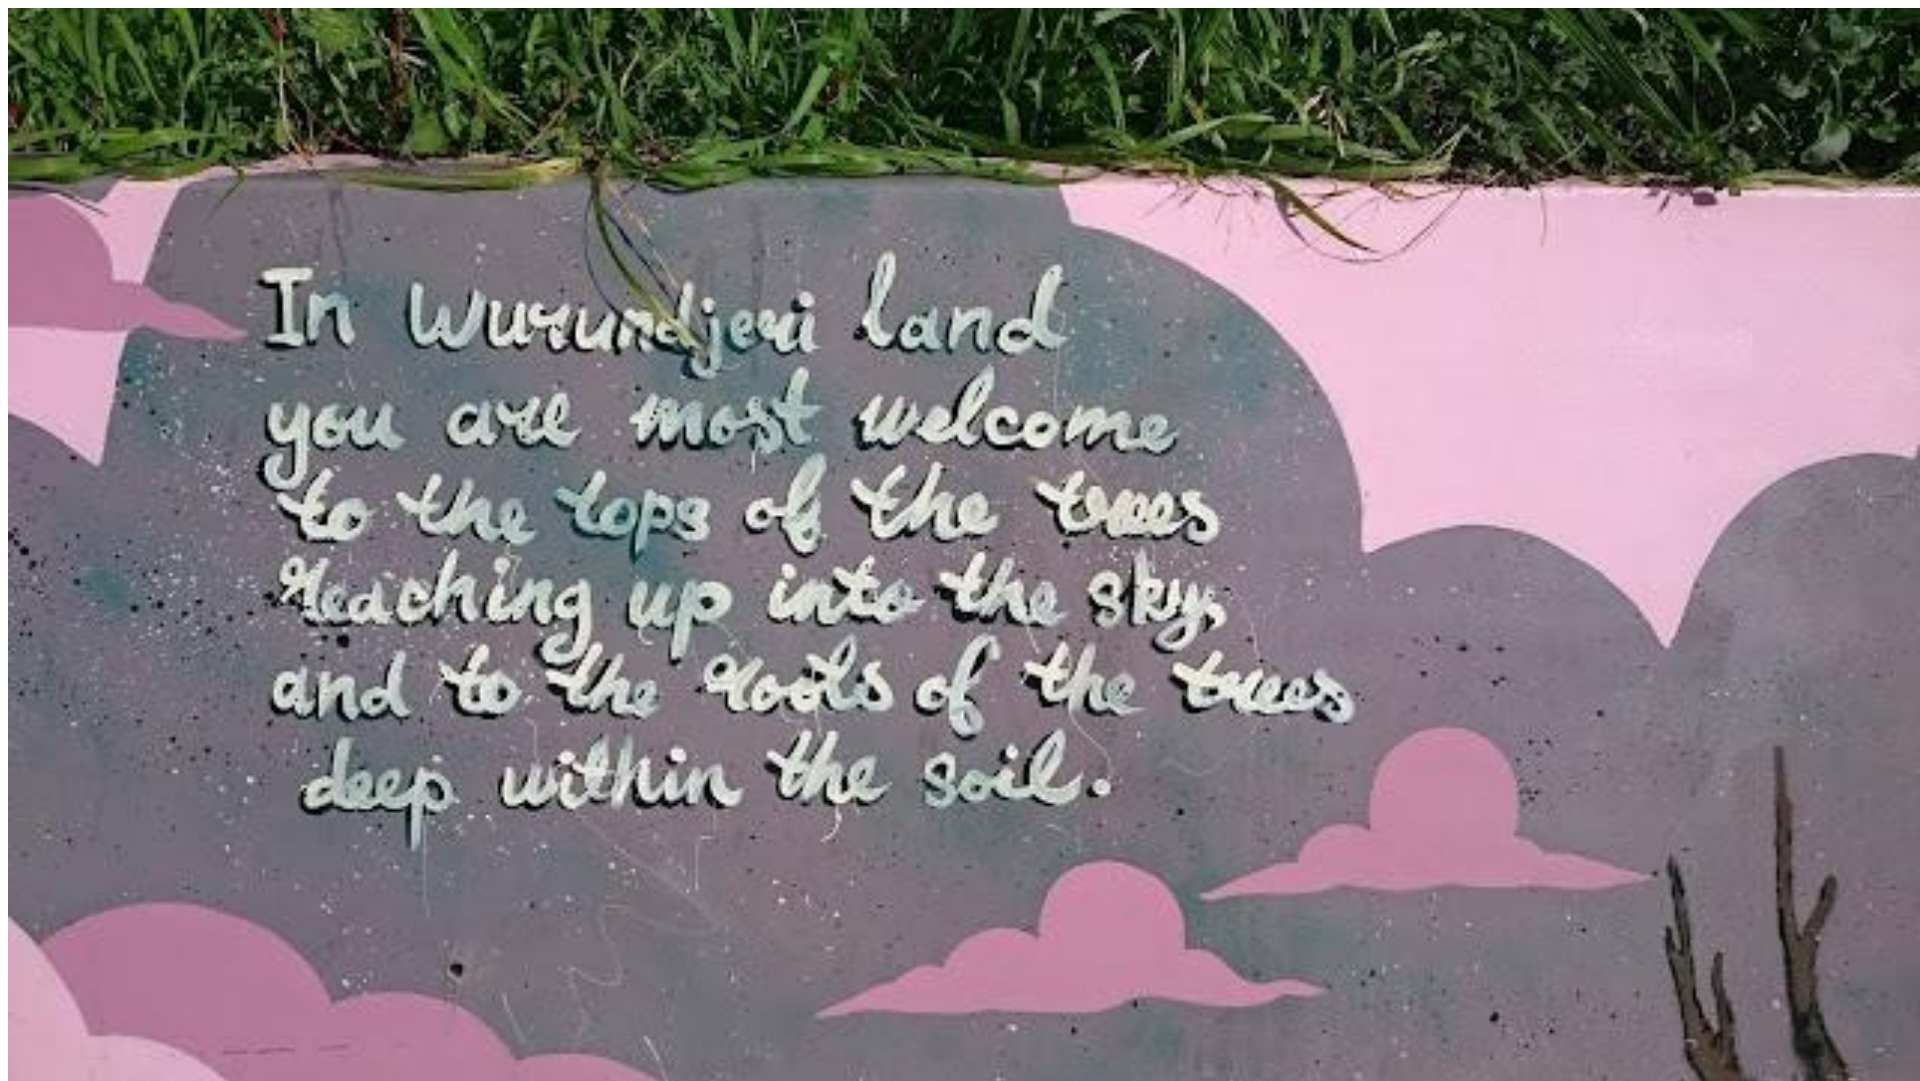 In Wurundjeri land
you are most welcome
to the tops of the trees
reaching up into the sky,
and to the roots of the trees
deep within the soil.